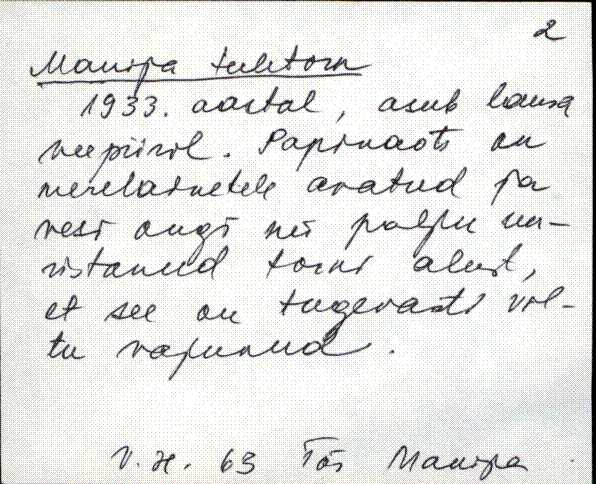 2
Manija tuletorn
1933. aastal, asub lausa
veepiiril. Papinaots on
merelainetele avatud ja
vesi ongi nii palju uu-
ristanud torni alust,
et see on tugevasti vil-
tu vajunud.
V. H. 63 Tõs Manija